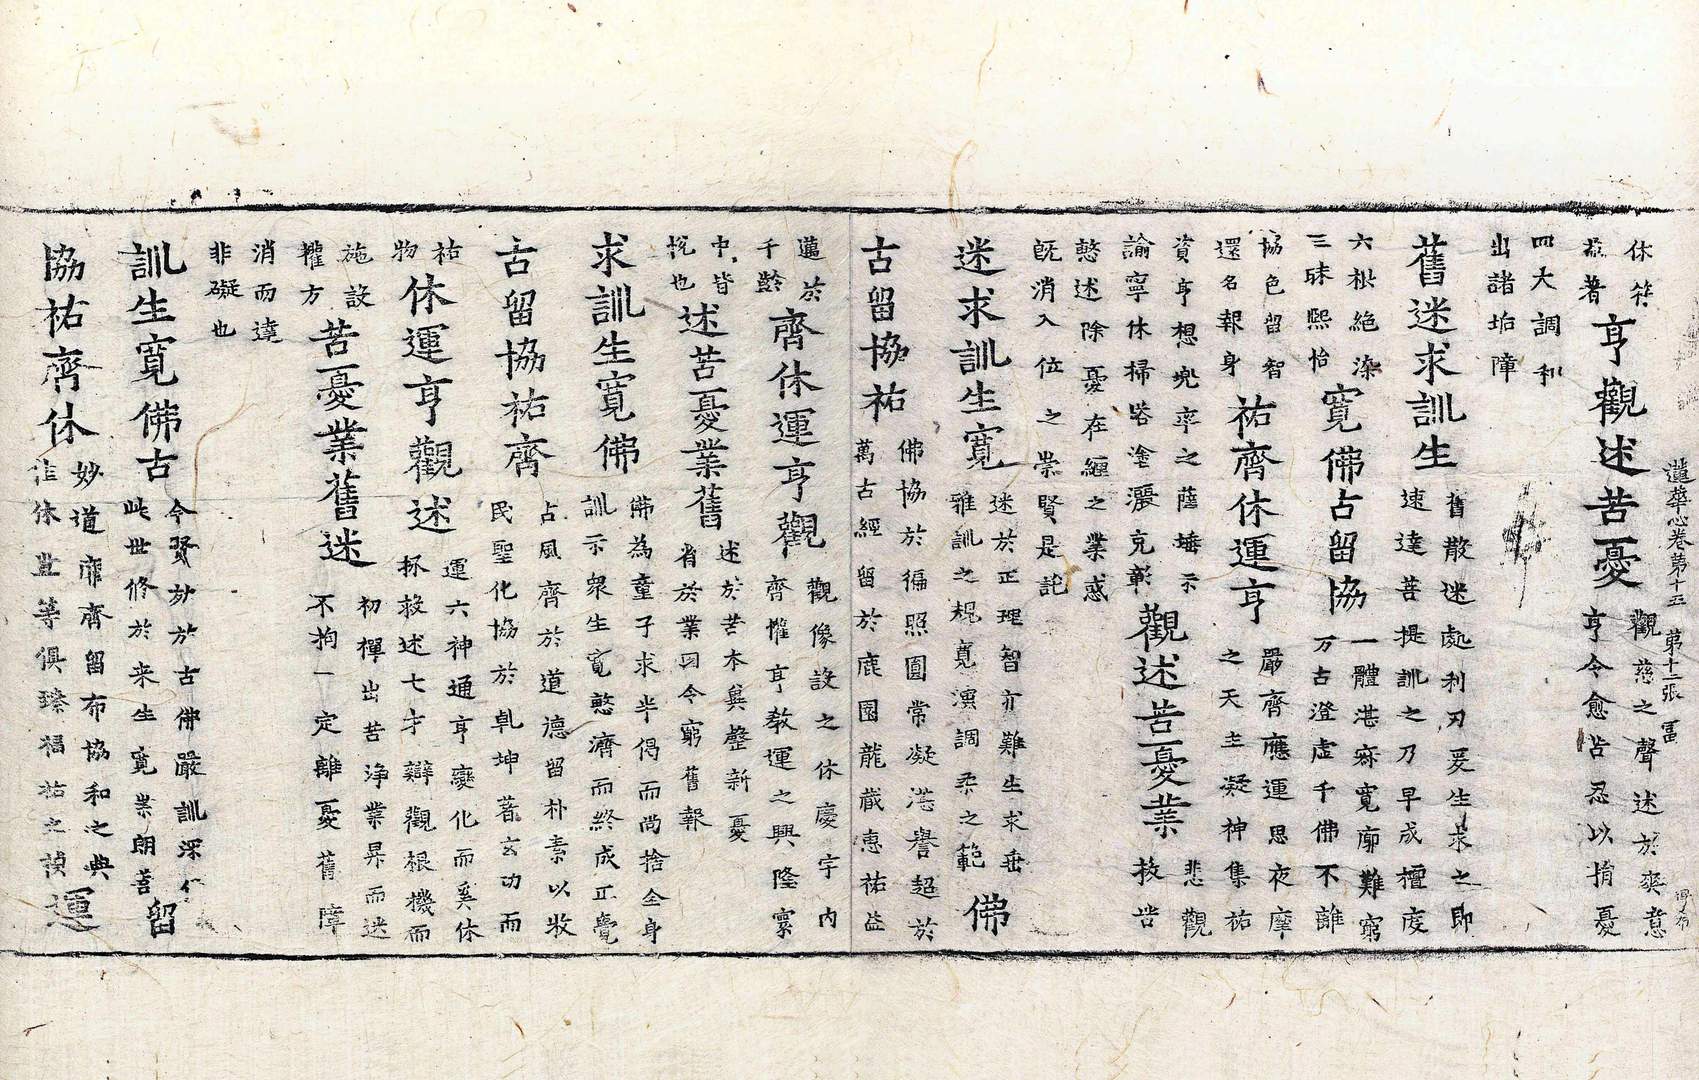 蓮華心卷第十五　第十二張　冨
休筞
益著
亨觀述苦憂
觀慈之聲述於爽意
亨今愈苦忍以捐憂
四大調利
出諸垢障
舊迷求訓生
舊散迷處利刃爰生求之即
速達菩提訓之乃早成檀度
六根絶染
三昧熙怡
寬佛古留協
一體湛寂寬廓難窮
万古澄虛千佛不離
協色留智
還名報身
祐齊休運亨
嚴齊應運思夜摩
之天主凝神集祐
資亨想兜率之薩埵示
諭寧休掃啓塗克彰
觀述苦憂業
悲觀
救苦
愍述除憂在纏之業惑
旣消入位之崇賢是託
迷求訓生寬
迷於正理智亦難生求垂
雅訓之規寬演調柔之範
佛
古留協祐
佛協於徧照圓常凝湛譽超於
萬古經留於鹿園龍藏惠祐益
邁於
千齡
齊休運亨觀
觀像設之休慶宇内
齊懽亨敎運之興隆寰
中皆
悅也
述苦憂業舊
述於苦本與整新憂
省於業因今窮舊報
求訓生寬佛
佛為童子求半偈而尚捨全身
訓示衆生寬愍濟而終成正覺
古留協祐齊
古風齊於道德留朴素以牧
民聖化協於乹坤著玄功而
祐
物
休運亨觀述
運六神通亨變化而奚休
拯救述七才辯觀根機而
施設
權方
苦憂業舊迷
初禪出苦淨業昇而迷
不拘一定離憂舊障
消而達
非礙也
訓生寬佛古
今賢劫於古佛嚴訓深
此世修於来生寬業朗善
留
協祐齊休
妙道靡齊留布協和之典
隹休豈等俱臻福祐之禎
運